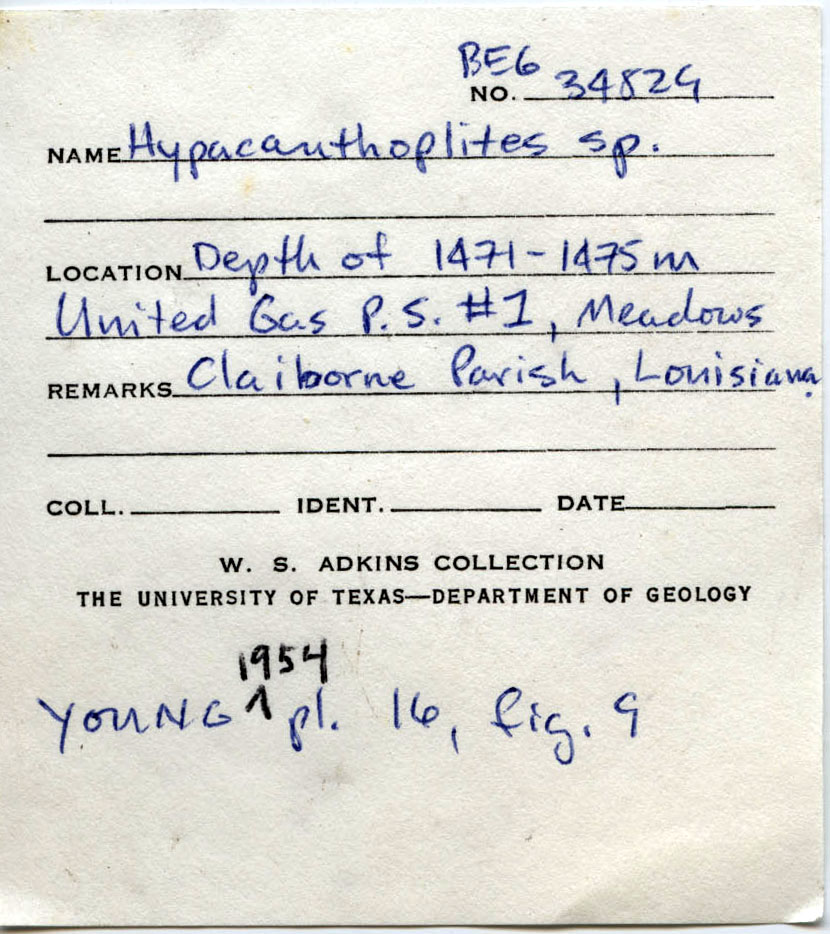 BEG
NO. 34829
NAME Hypacanthoplites sp.
LOCATION Depth of 1471-1475m
United Gas P.S. #1, Meadows
REMARKS Claiborne Parish, Louisiana
COLL. IDENT. DATE
W. S. ADKINS COLLECTION
THE UNIVERSITY OF TEXAS—DEPARTMENT OF GEOLOGY
1954
YOUNG ^ pl. 16, fig. 9